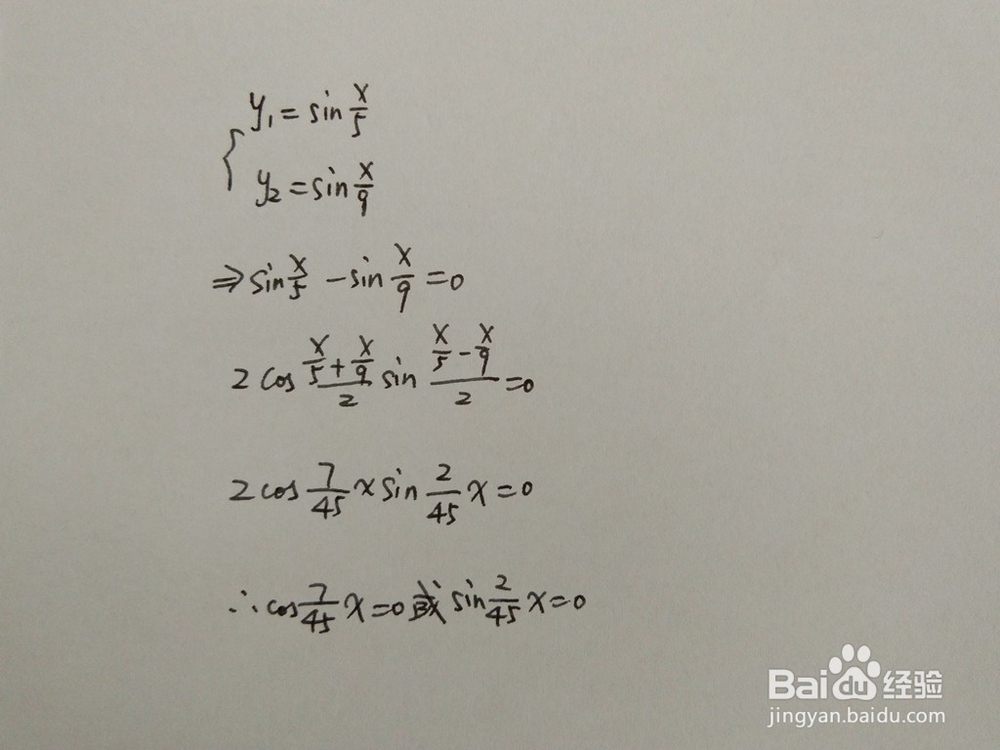 { y₁ = sin x/5
y₂ = sin x/9
⇒ sin x/5 - sin x/9 = 0
2 cos (x/5 + x/9)/2 sin (x/5 - x/9)/2 = 0
2 cos 7/45 x sin 2/45 x = 0
∴ cos 7/45 x = 0 或 sin 2/45 x = 0
Baidu 经验
jingyan.baidu.com